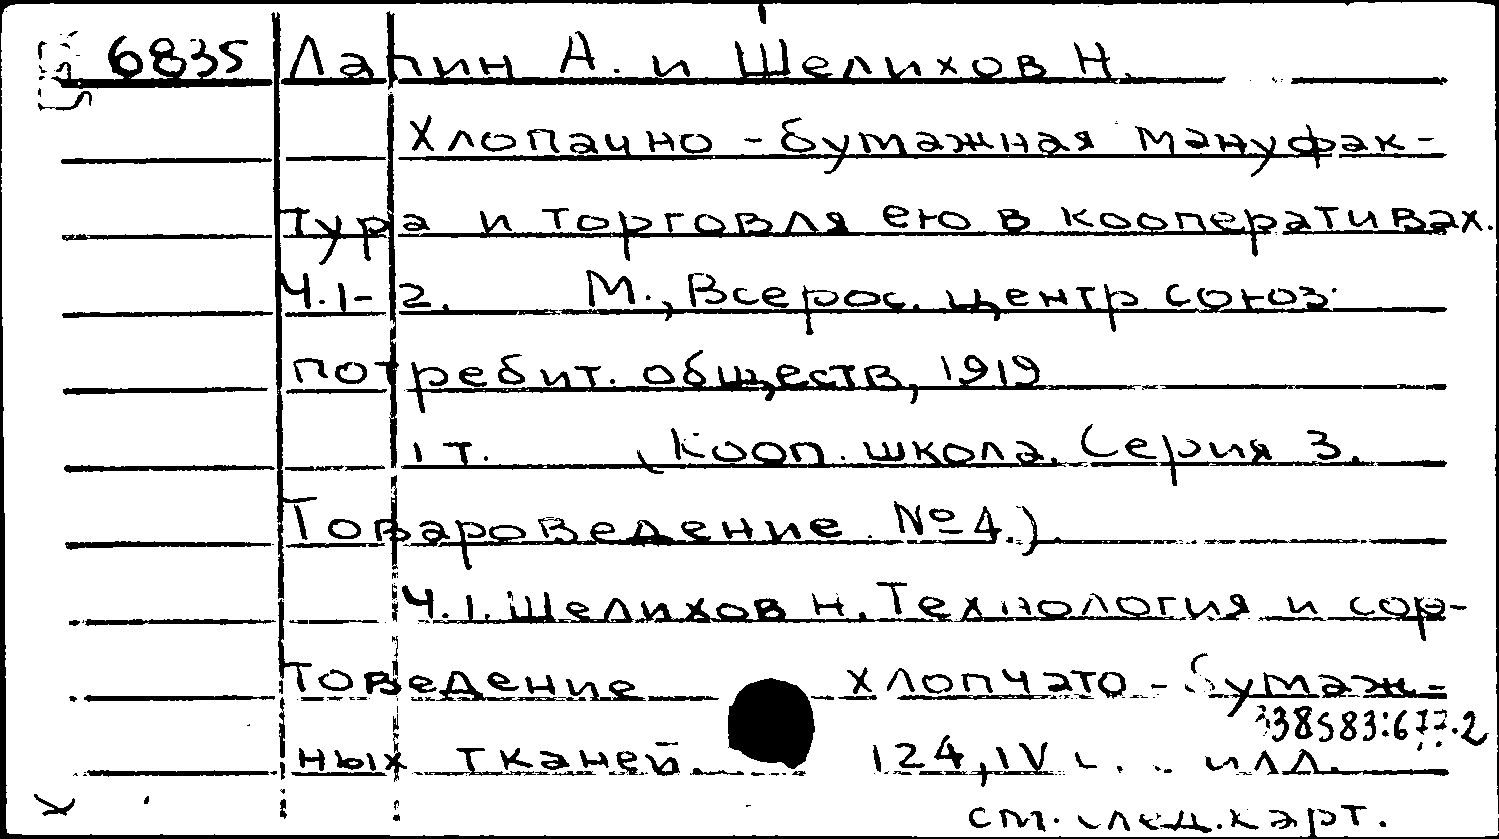 6835 Лапин А. и Шелихов Н.
Хлопачно-бумажная мануфак-
тура и торговля ею в кооперативах.
Ч.1-2. М., Всерос. центр союз
потребит. обществ, 1919
1 т. (Кооп. школа. Серия 3.
Товароведение №4.)
Ч.1. Шелихов Н. Технология и сор-
товедение хлопчато-бумаж-
ных тканей. 124, IV с. . илл.
338583:677.2
см. след. карт.